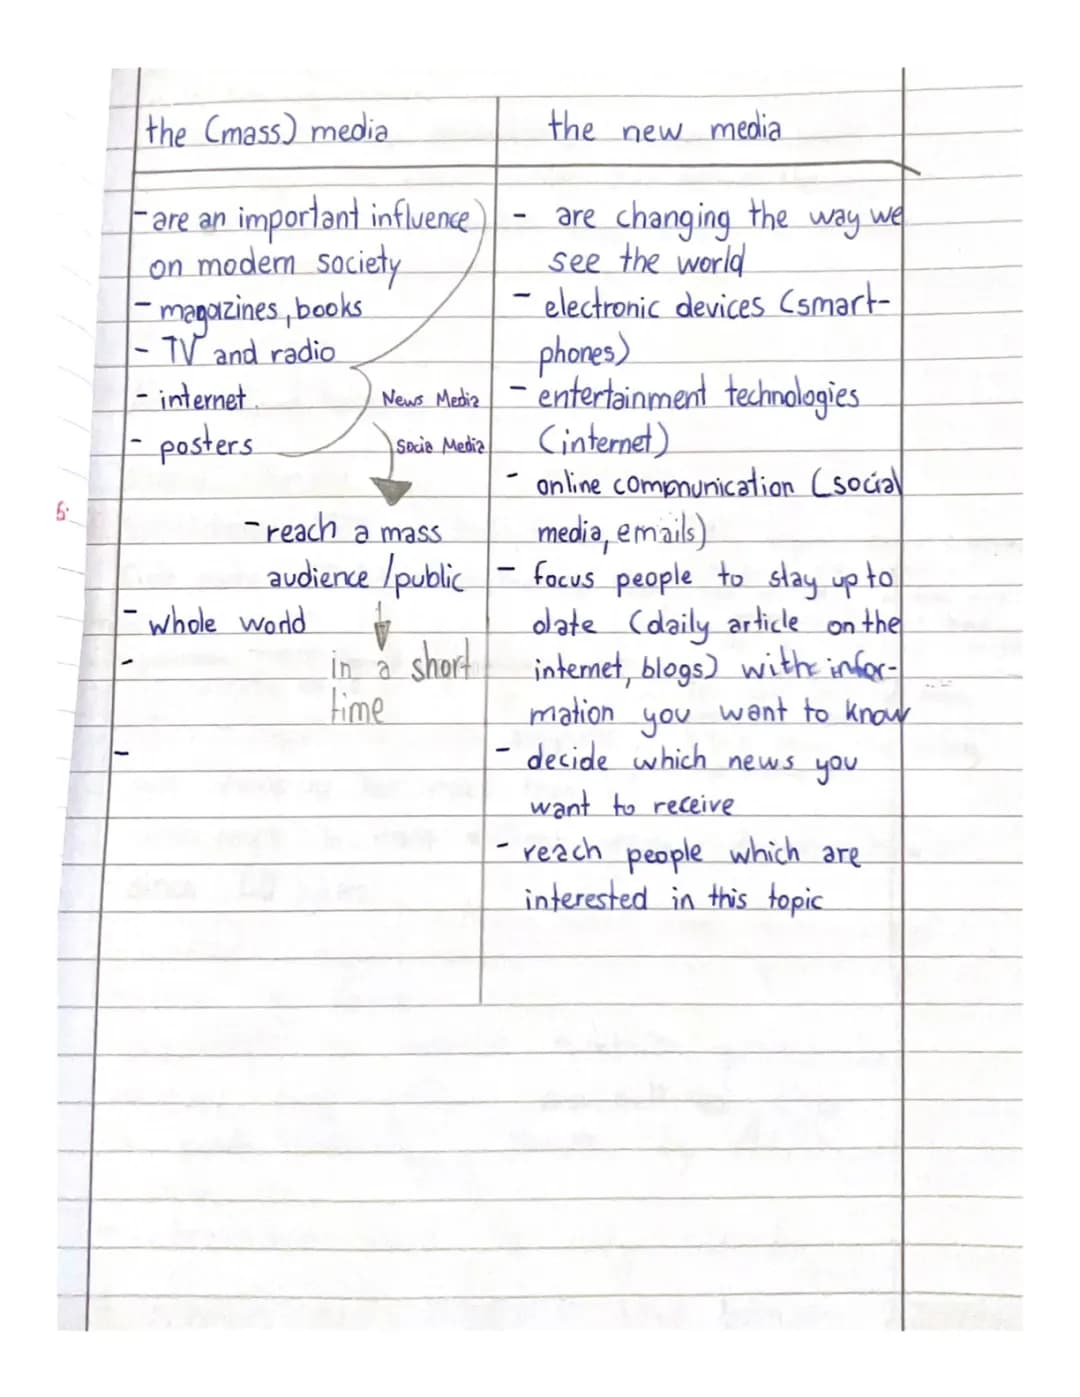 the (mass) media
- are an important influence
on modern society
- magazines, books
- TV and radio
- internet
- posters
News Media
Socia Media
- reach a mass
audience /public
- whole world
-
in a short
time
-
the new media
- are changing the way we
see the world
- electronic devices (smart-
phones)
- entertainment technologies
(internet)
- online communication (social
media, emails)
- focus people to stay up to
date (daily article on the
internet, blogs) with infor-
mation you want to know
- decide which news you
want to receive
- reach people which are
interested in this topic